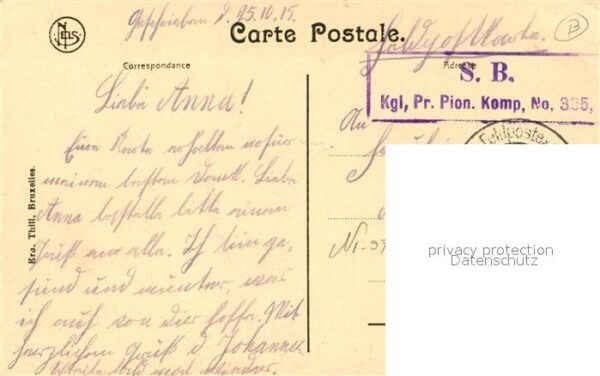 Geschrieben d. 25.10.15.
NELS
Carte Postale.
Feldpostkarte.
B
Correspondance
Adresse
S. B.
Kgl, Pr. Pion. Komp, No, 335,
Feldpostex
An
Liebe Anna!
Eure Karte erhalten wofür
meinen besten Dank. Liebe
Anna bestelle bitte einen
Gruß an alle. Ich bin ge-
sund und munter, was
ich auch von dir hoffe. Mit
herzlichem Gruß d Johannes
bald mal wieder.
Ern. Thill, Bruxelles.
privacy protection
Datenschutz